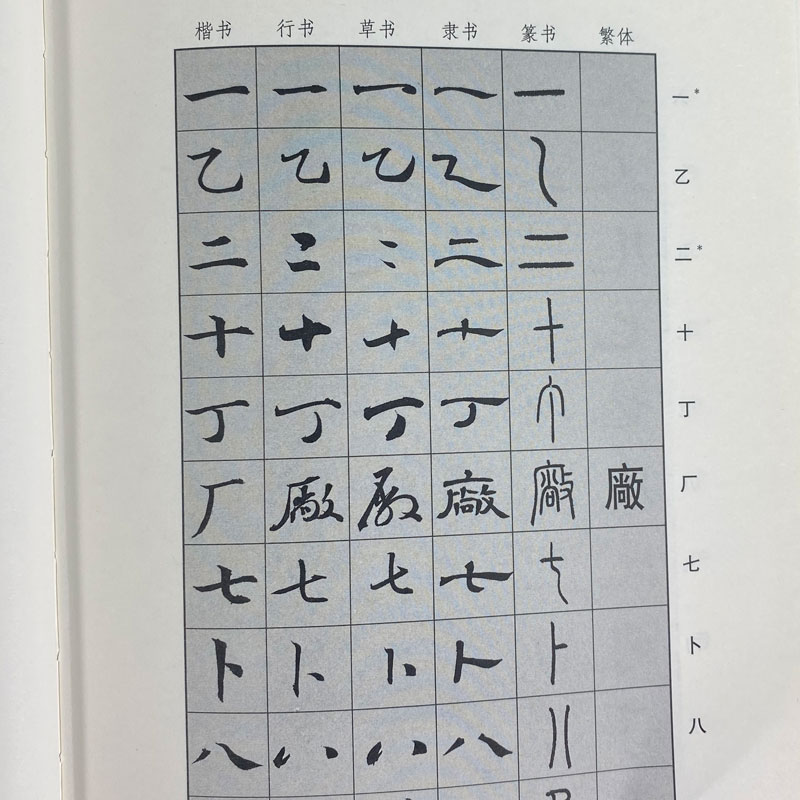 楷书 行书 草书 隶书 篆书 繁体
一 一 一 一 一 一*
乙 乙 乙 乙 乙 乙
二 二 二 二 二 二*
十 十 十 十 十 十
丁 丁 丁 丁 丁 丁
厂 廠 廠 廠 廠 廠 厂
七 七 七 七 七 七
卜 卜 卜 卜 卜 卜
八 八 八 八 八 八